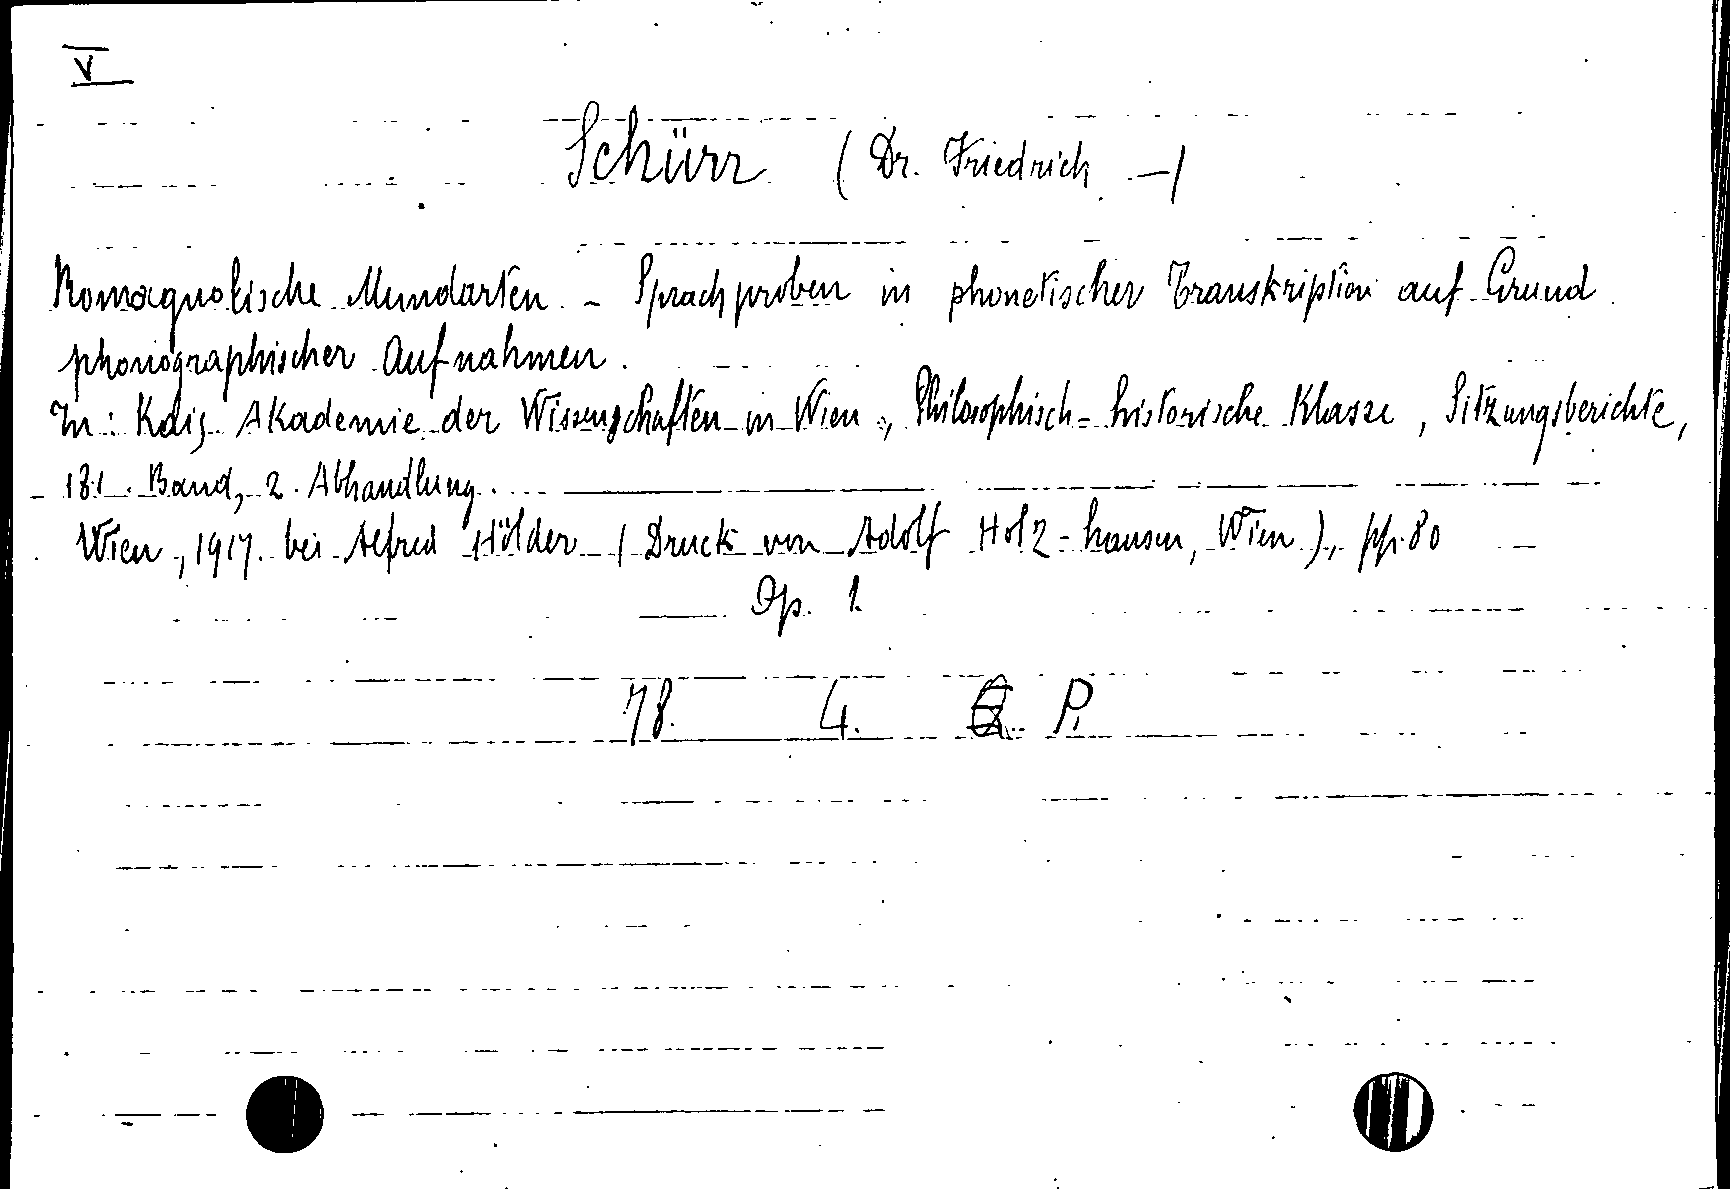 V
Schürr (Dr. Friedrich —)
Romagnolische Mundarten - Sprachproben in phonetischer Transkription auf Grund
phonographischer Aufnahmen.
In: Kais. Akademie der Wissenschaften in Wien, Philosophisch-historische Klasse, Sitzungsberichte,
181. Band, 2. Abhandlung.
Wien, 1917. bei Alfred Hölder (Druck von Adolf Holz-hausen, Wien), pp. 80
Op. 1.
78. 4. P.